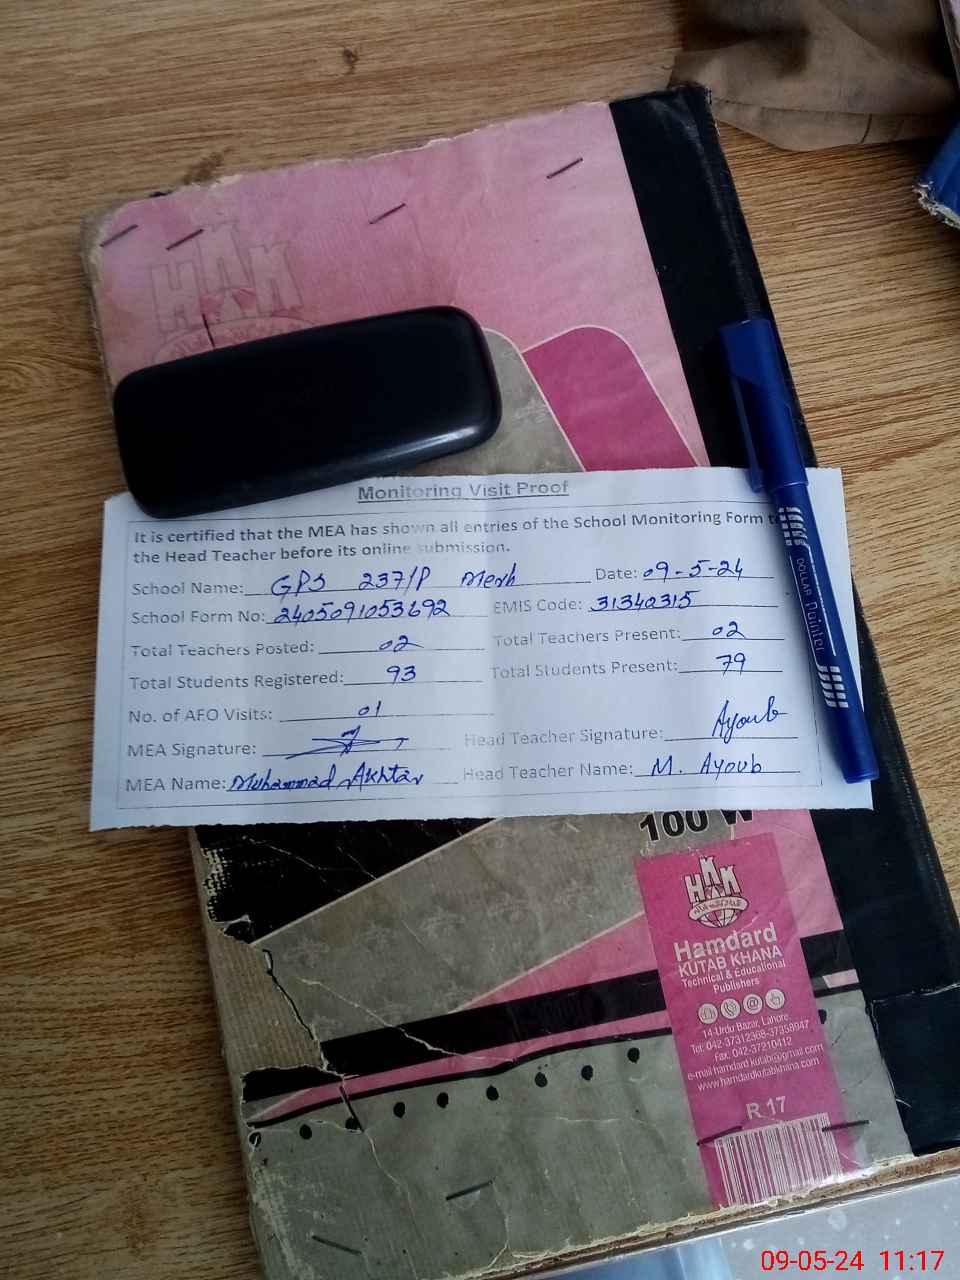 HKK
Monitoring Visit Proof
It is certified that the MEA has shown all entries of the School Monitoring Form to
the Head Teacher before its online submission.
School Name: GPS 237/P Date: 09-5-24
School Form No: 2405091053692 EMIS Code: 31340315
Total Teachers Posted: 02 Total Teachers Present: 02
Total Students Registered: 93 Total Students Present: 79
No. of AFO Visits: 01
MEA Signature: Head Teacher Signature: Ayoub
MEA Name: Muhammad Akhtar Head Teacher Name: M. Ayoub
DOLLAR Pointer
100 W
HKK
Hamdard
KUTAB KHANA
Technical & Educational
Publishers
14-Urdu Bazar, Lahore
Tel: 042-37312368-37358947
Fax. 042-37210412
e-mail hamdard.kutab@gmail.com
www.hamdardkutabkhana.com
R 17
09-05-24 11:17